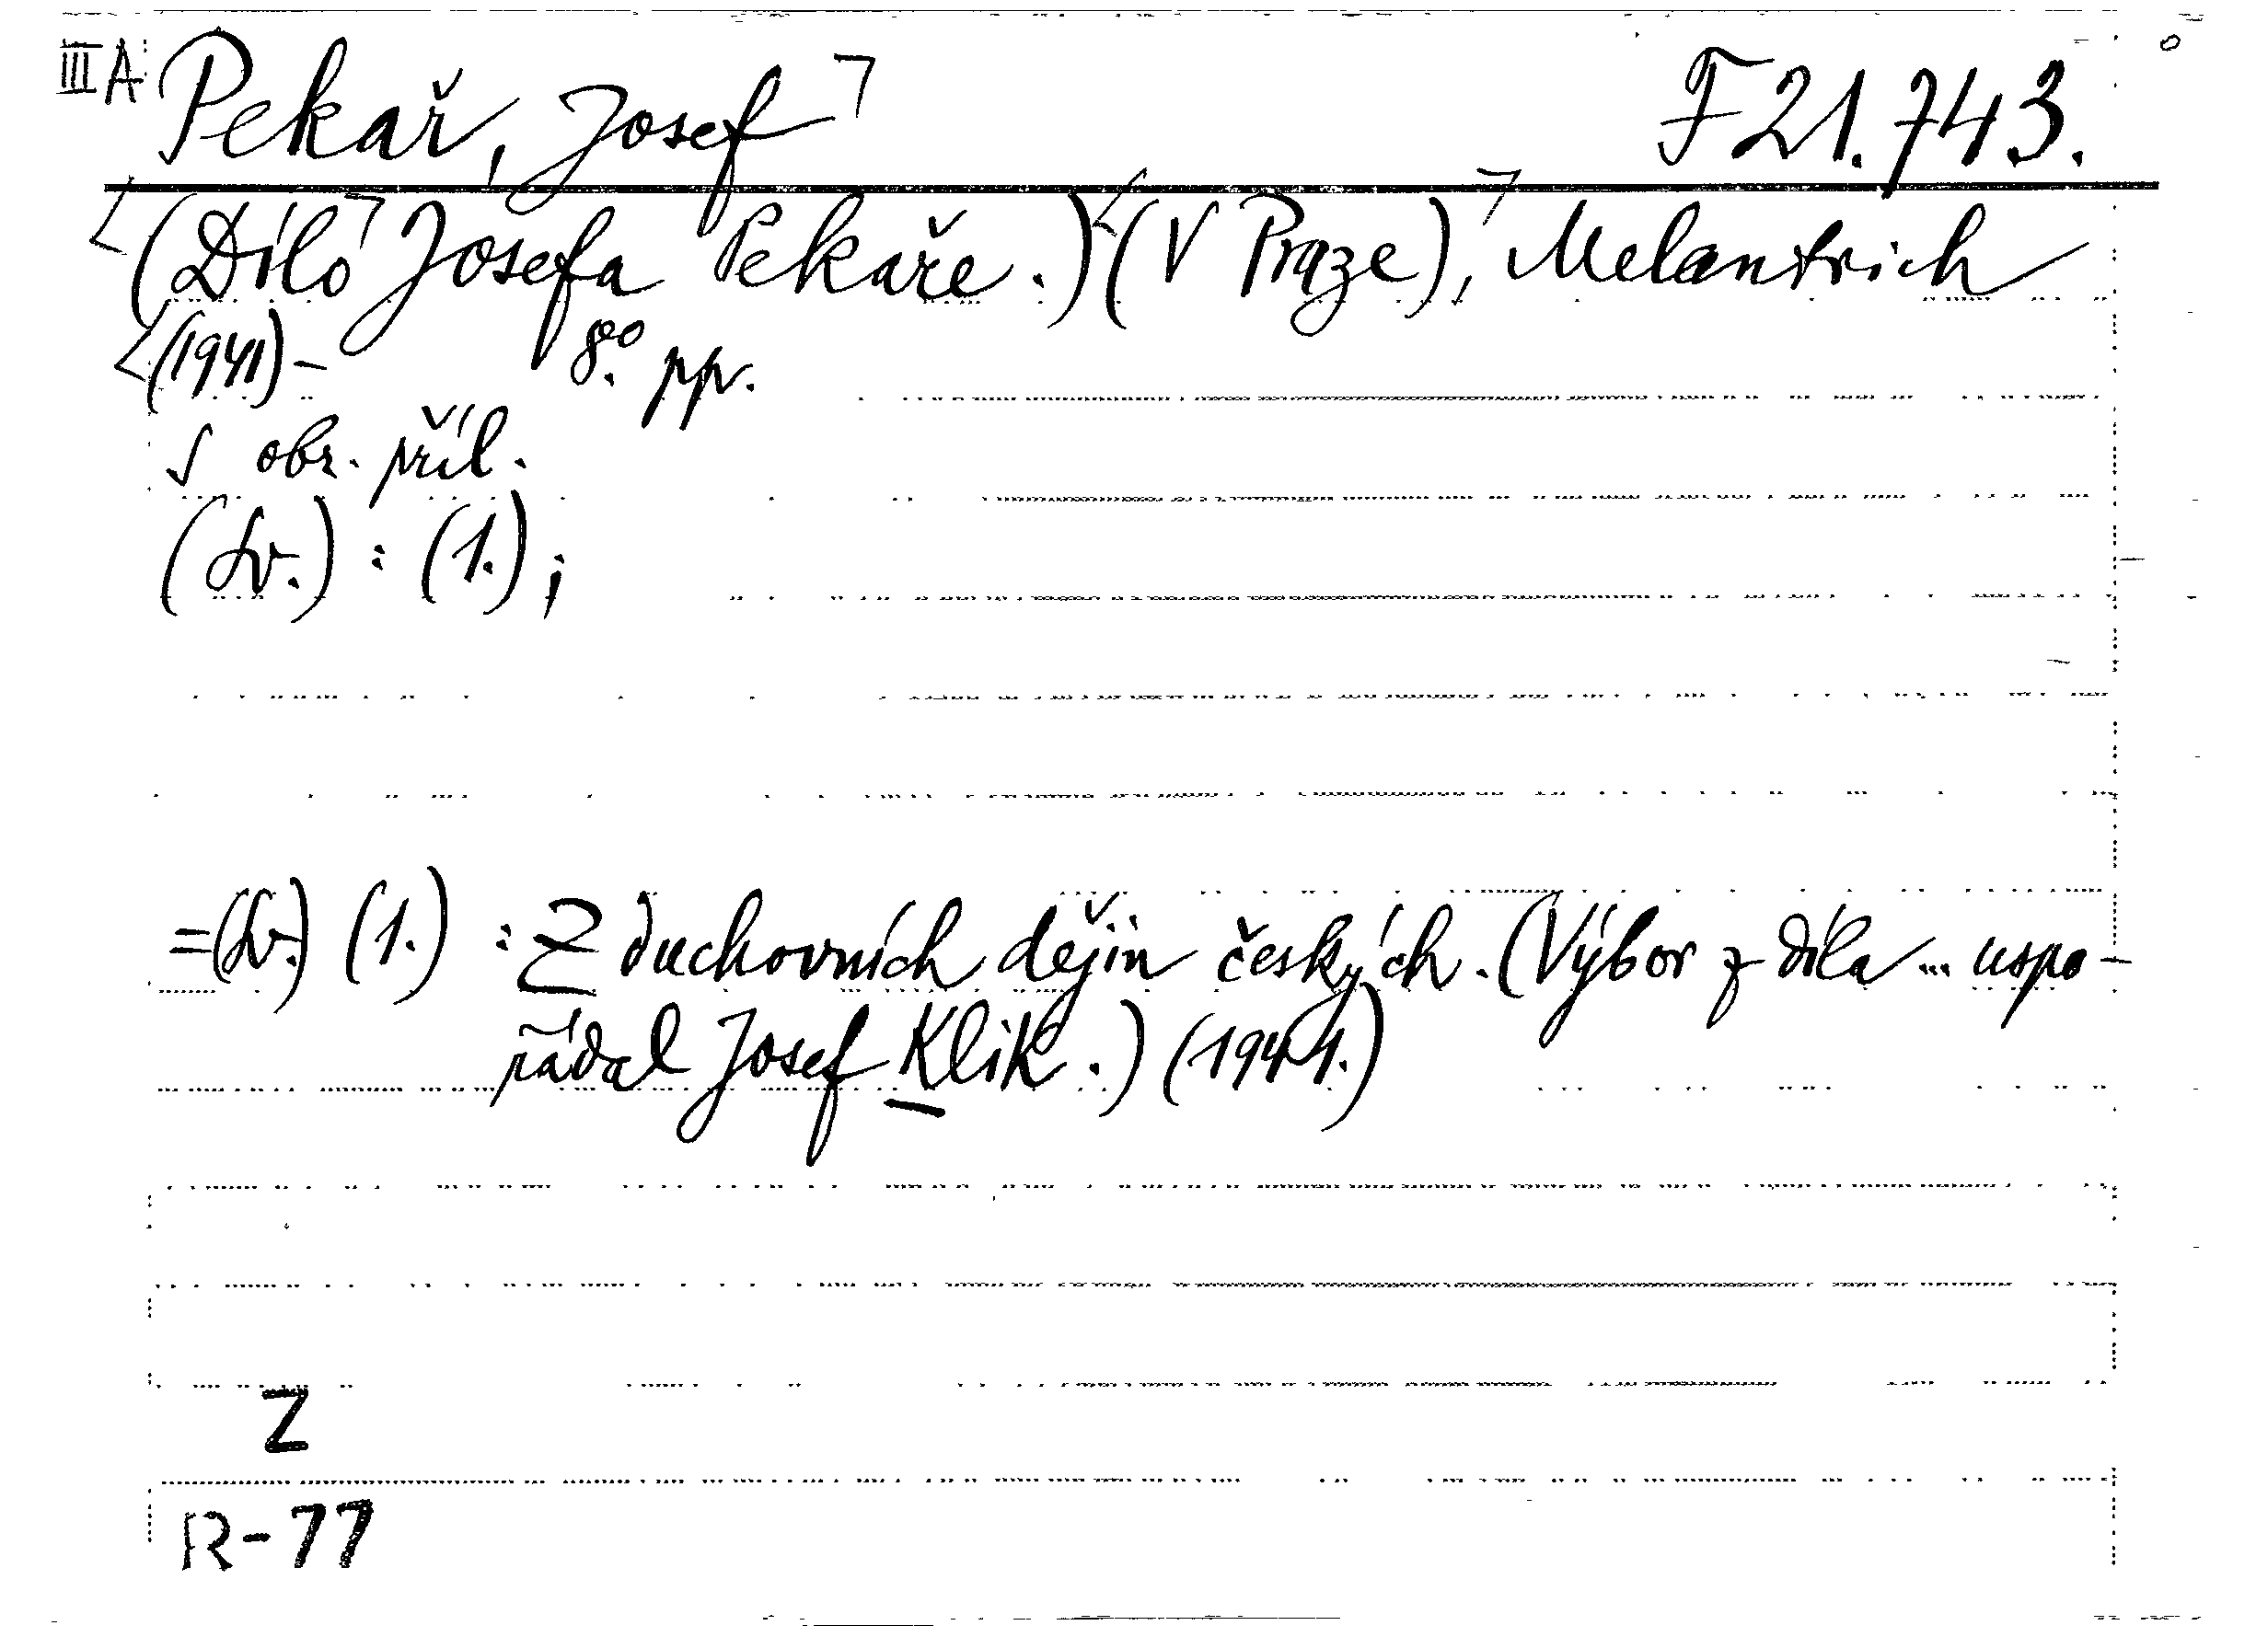 III A Pekař, Josef F 21.743.
(Dílo Josefa Pekaře.) (V Praze), Melantrich
(1941)- 8° pp.
S obr. příl.
(Sv.) : (1.) ;
=(Sv.) (1.) : Z duchovních dějin českých. (Výbor z díla ... uspo-
řádal Josef Klik.) (1941.)
Z
R-77